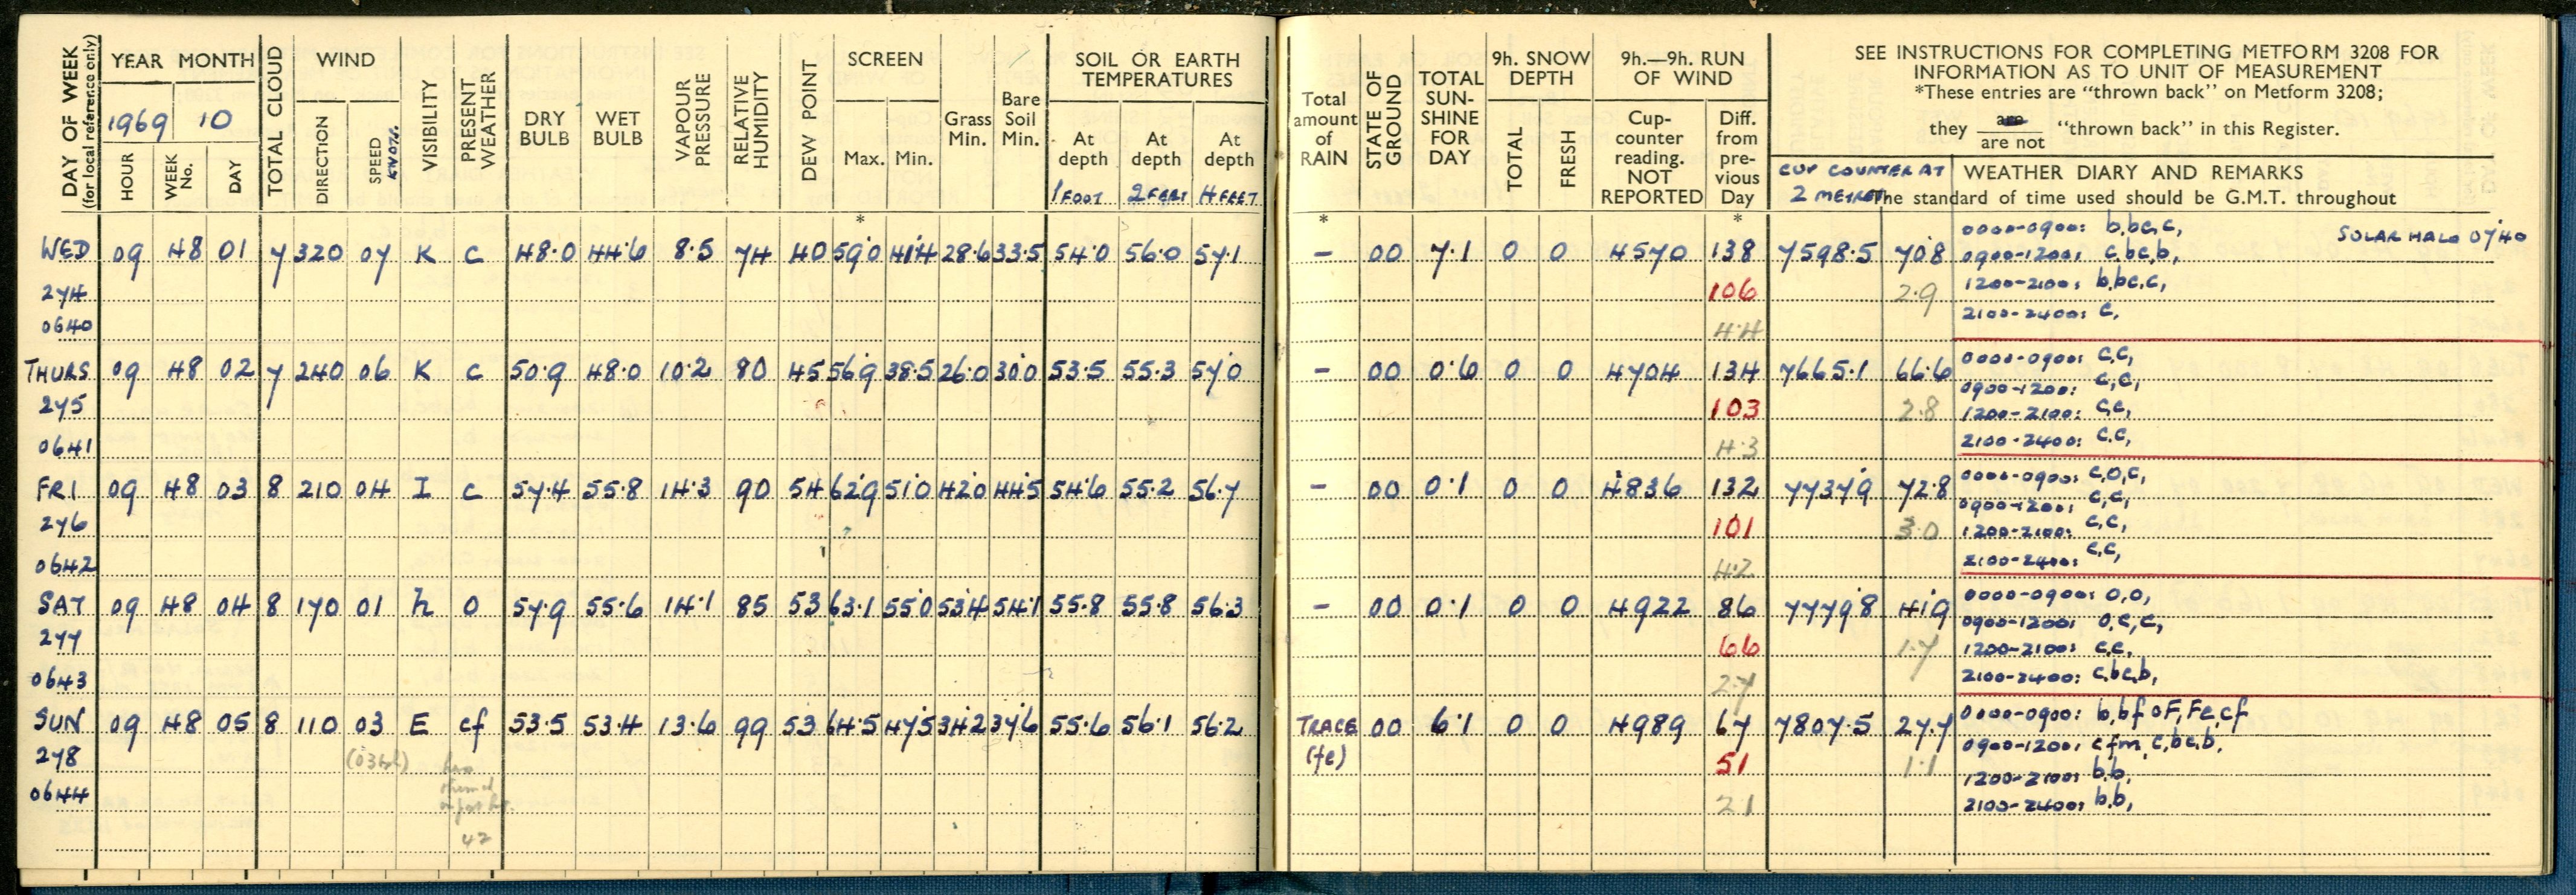 DAY OF WEEK
(for local reference only)
YEAR MONTH
1969 10
HOUR WEEK No. DAY
TOTAL CLOUD
WIND
DIRECTION SPEED KNOTS
VISIBILITY
PRESENT WEATHER
DRY BULB
WET BULB
VAPOUR PRESSURE
RELATIVE HUMIDITY
DEW POINT
SCREEN
Max. Min.
Grass Min.
Bare Soil Min.
SOIL OR EARTH TEMPERATURES
At depth 1 FOOT
At depth 2 FEET
At depth 4 FEET
Total amount of RAIN
STATE OF GROUND
TOTAL SUN-SHINE FOR DAY
9h. SNOW DEPTH
TOTAL FRESH
9h.—9h. RUN OF WIND
Cup-counter reading. NOT REPORTED
Diff. from pre-vious Day
SEE INSTRUCTIONS FOR COMPLETING METFORM 3208 FOR
INFORMATION AS TO UNIT OF MEASUREMENT
*These entries are "thrown back" on Metform 3208;
they are / are not "thrown back" in this Register.
CUP COUNTER AT 2 METRES
WEATHER DIARY AND REMARKS
The standard of time used should be G.M.T. throughout
* * *
WED 09 48 01 7 320 07 K C 48.0 44.6 8.5 74 40 59.0 41.4 28.6 33.5 54.0 56.0 57.1 – 00 7.1 0 0 4570 138 7598.5 70.8
0000-0900: b,bc,c, SOLAR HALO 0740
0900-1200: c,bc,b,
274 106 2.9 1200-2100: b,bc,c,
0640 4.4 2100-2400: c,
THURS 09 48 02 7 240 06 K C 50.9 48.0 10.2 80 45 56.9 38.5 26.0 30.0 53.5 55.3 57.0 – 00 0.6 0 0 4704 134 7665.1 66.6
0000-0900: c,c,
0900-1200: c,c,
275 103 2.8 1200-2100: c,c,
0641 4.3 2100-2400: c,c,
FRI 09 48 03 8 210 04 I C 57.4 55.8 14.3 90 54 62.9 51.0 42.0 44.5 54.6 55.2 56.7 – 00 0.1 0 0 4836 132 7737.9 72.8
0000-0900: c,o,c,
0900-1200: c,c,
276 101 3.0 1200-2100: c,c,
0642 4.2 2100-2400: c,c,
SAT 09 48 04 8 170 01 h O 57.9 55.6 14.1 85 53 63.1 55.0 53.4 54.1 55.8 55.8 56.3 – 00 0.1 0 0 4922 86 7779.8 41.9
0000-0900: o,o,
0900-1200: o,c,c,
277 66 1.7 1200-2100: c,c,
0643 2.7 2100-2400: c,bc,b,
SUN 09 48 05 8 110 03 E cf 53.5 53.4 13.6 99 53 64.5 47.5 34.2 37.6 55.6 56.1 56.2 TRACE 00 6.1 0 0 4989 67 7807.5 27.7
0000-0900: b,bf oF,Fe,cf
0900-1200: cfm,c,bc,b,
278 (fe) 51 1.1 1200-2100: b,b,
0644 2.1 2100-2400: b,b,
42